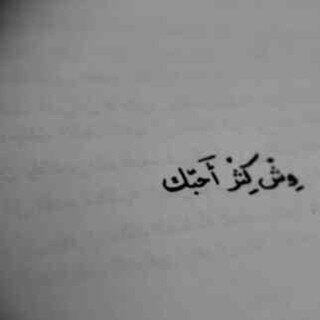 وِشْ كِثْر أَحبّك